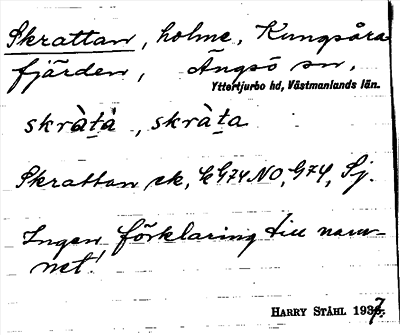 Skrattan, holme, Kungsåra
fjärden, Ängsö sn,
Yttertjurbo hd, Västmanlands län.
skràtà, skràta
Skrattan ek, G74NO, G74, Sj.
Ingen förklaring till nam-
net!
HARRY STÅHL 1937.